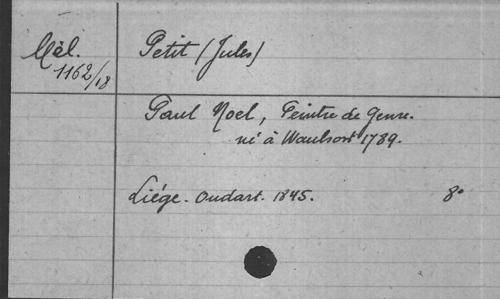 Mél.
1162/18
Petit (Jules)
Paul Noel, Peintre de Genre.
né à Waulsort 1789.
Liége. Oudart. 1845. 8°